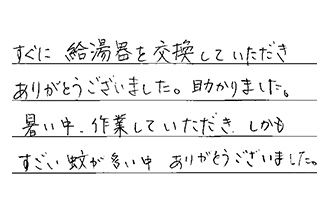 すぐに 給湯器を交換していただき
ありがとうございました。助かりました。
暑い中、作業していただき、しかも
すごい蚊が多い中 ありがとうございました。